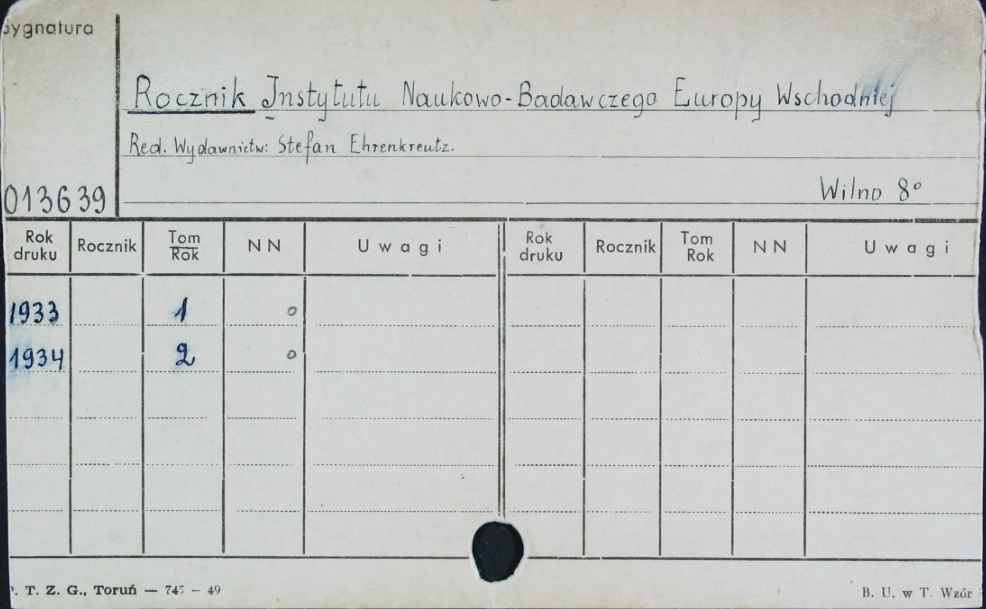 Sygnatura
Rocznik Instytutu Naukowo-Badawczego Europy Wschodniej
Red. Wydawnictw: Stefan Ehrenkreutz.
013639
Wilno 8°
Rok druku Rocznik Tom Rok NN Uwagi Rok druku Rocznik Tom Rok NN Uwagi
1933 1 o
1934 2 o
P. T. Z. G., Toruń — 745 — 49
B. U. w T. Wzór